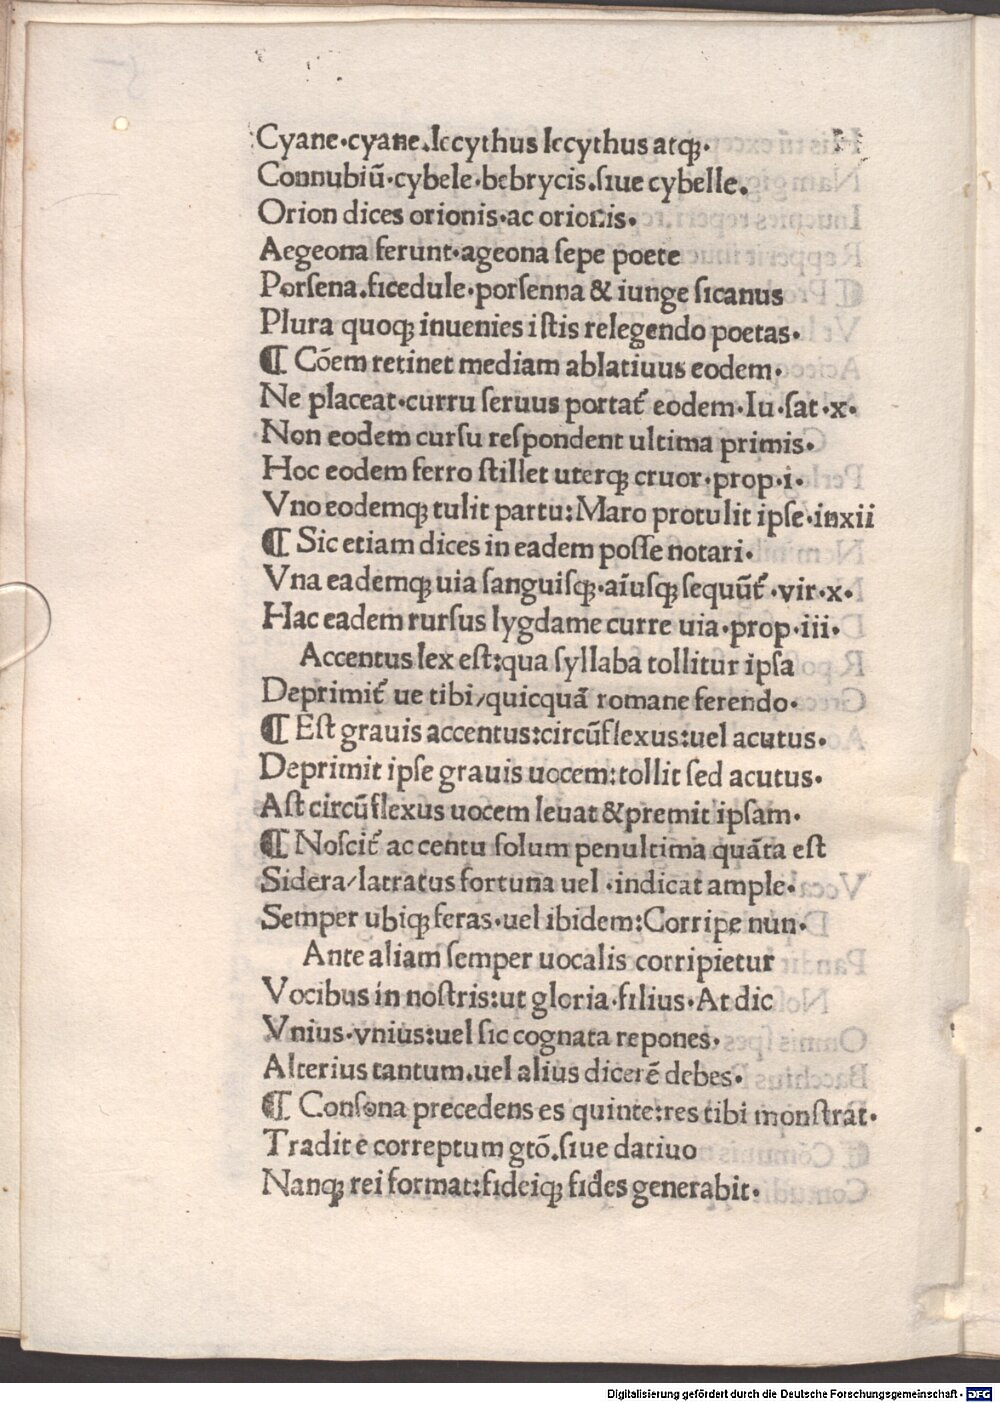 Cyane·cyane.lecythus lecythus atqꝫ·
Connubiū·cybele·bebrycis.siue cybelle.
Orion dices orionis·ac orionis·
Aegeona ferunt·ageona sepe poete
Porsena.ficedule·porsenna & iunge sicanus
Plura quoqꝫ inuenies istis relegendo poetas·
¶ Cōem retinet mediam ablatiuus eodem·
Ne placeat·curru seruus portat̄ eodem·Iu·sat·x·
Non eodem cursu respondent ultima primis·
Hoc eodem ferro stillet uterqꝫ cruor·prop·i·
Vno eodemqꝫ tulit partu:Maro protulit ipse·inxii
¶ Sic etiam dices in eadem posse notari·
Vna eademqꝫ uia sanguisqꝫ·aīusqꝫ sequūt̄·vir·x·
Hac eadem rursus lygdame curre uia·prop·iii·
Accentus lex est:qua syllaba tollitur ipsa
Deprimit̄ ue tibi/quicquā romane ferendo·
¶ Est grauis accentus:circūflexus:uel acutus·
Deprimit ipse grauis uocem:tollit sed acutus·
Ast circūflexus uocem leuat & premit ipsam·
¶ Noscit̄ accentu solum penultima quāta est
Sidera/latratus fortuna uel·indicat ample·
Semper ubiqꝫ feras·uel ibidem:Corripe nun·
Ante aliam semper uocalis corripietur
Vocibus in nostris:ut gloria·filius·At dic
Vnius·vnius:uel sic cognata repones·
Alterius tantum.uel alius dicerē debes·
¶ Consona precedens es quinte:res tibi monstrat·
Tradit e correptum gtō.siue datiuo
Nanqꝫ rei format:fideiqꝫ fides generabit·
Digitalisierung gefördert durch die Deutsche Forschungsgemeinschaft - DFG